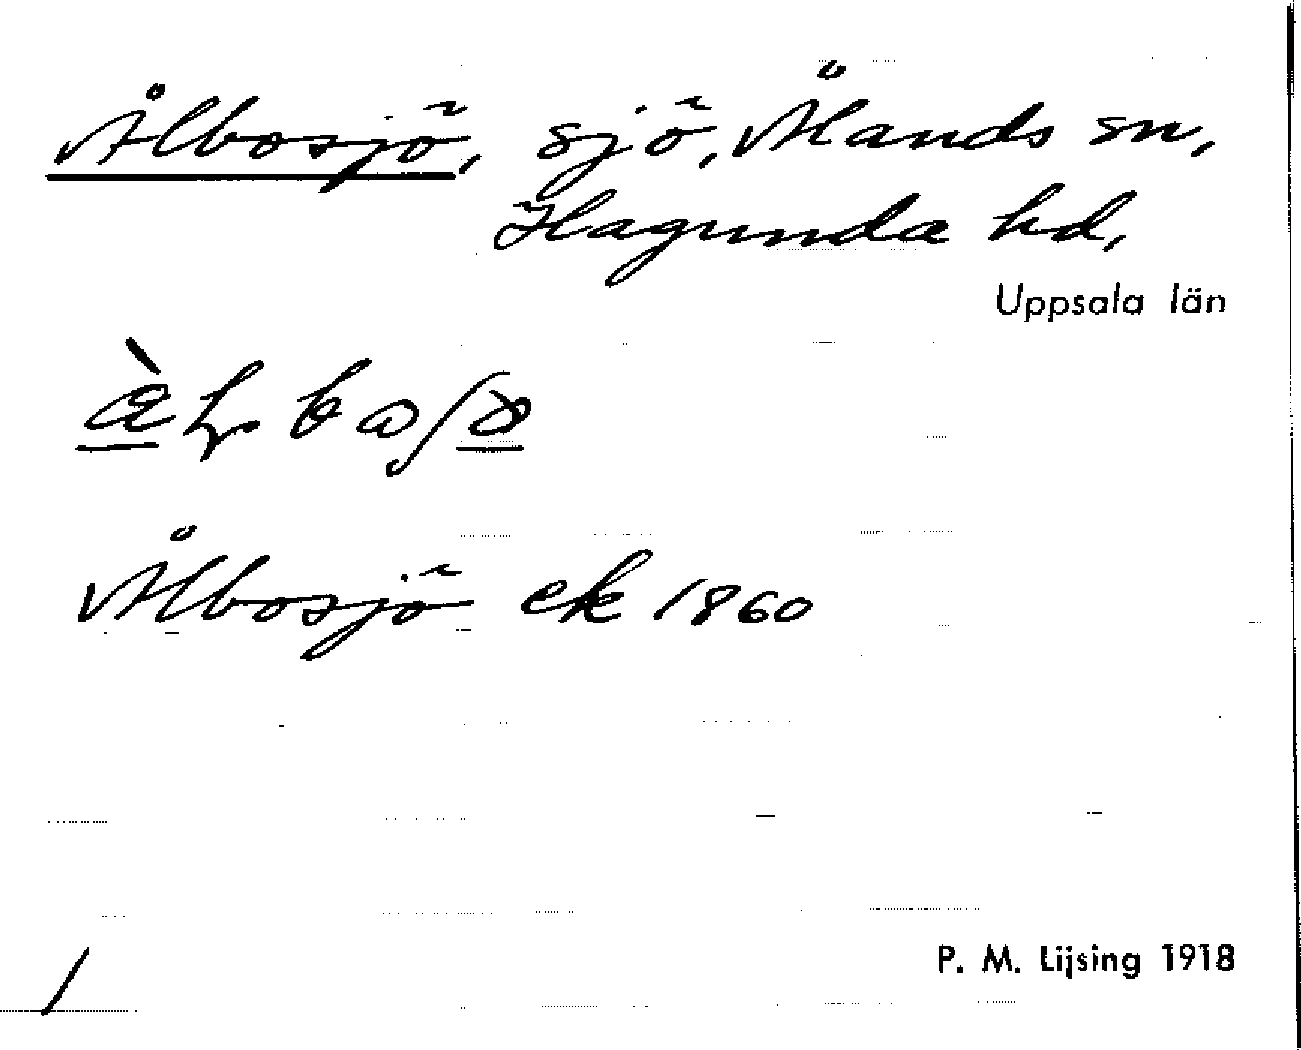 Ålbosjö, sjö, Ålands sn,
Hagunda hd,
Uppsala län
Ålbosjö ek 1860
P. M. Lijsing 1918